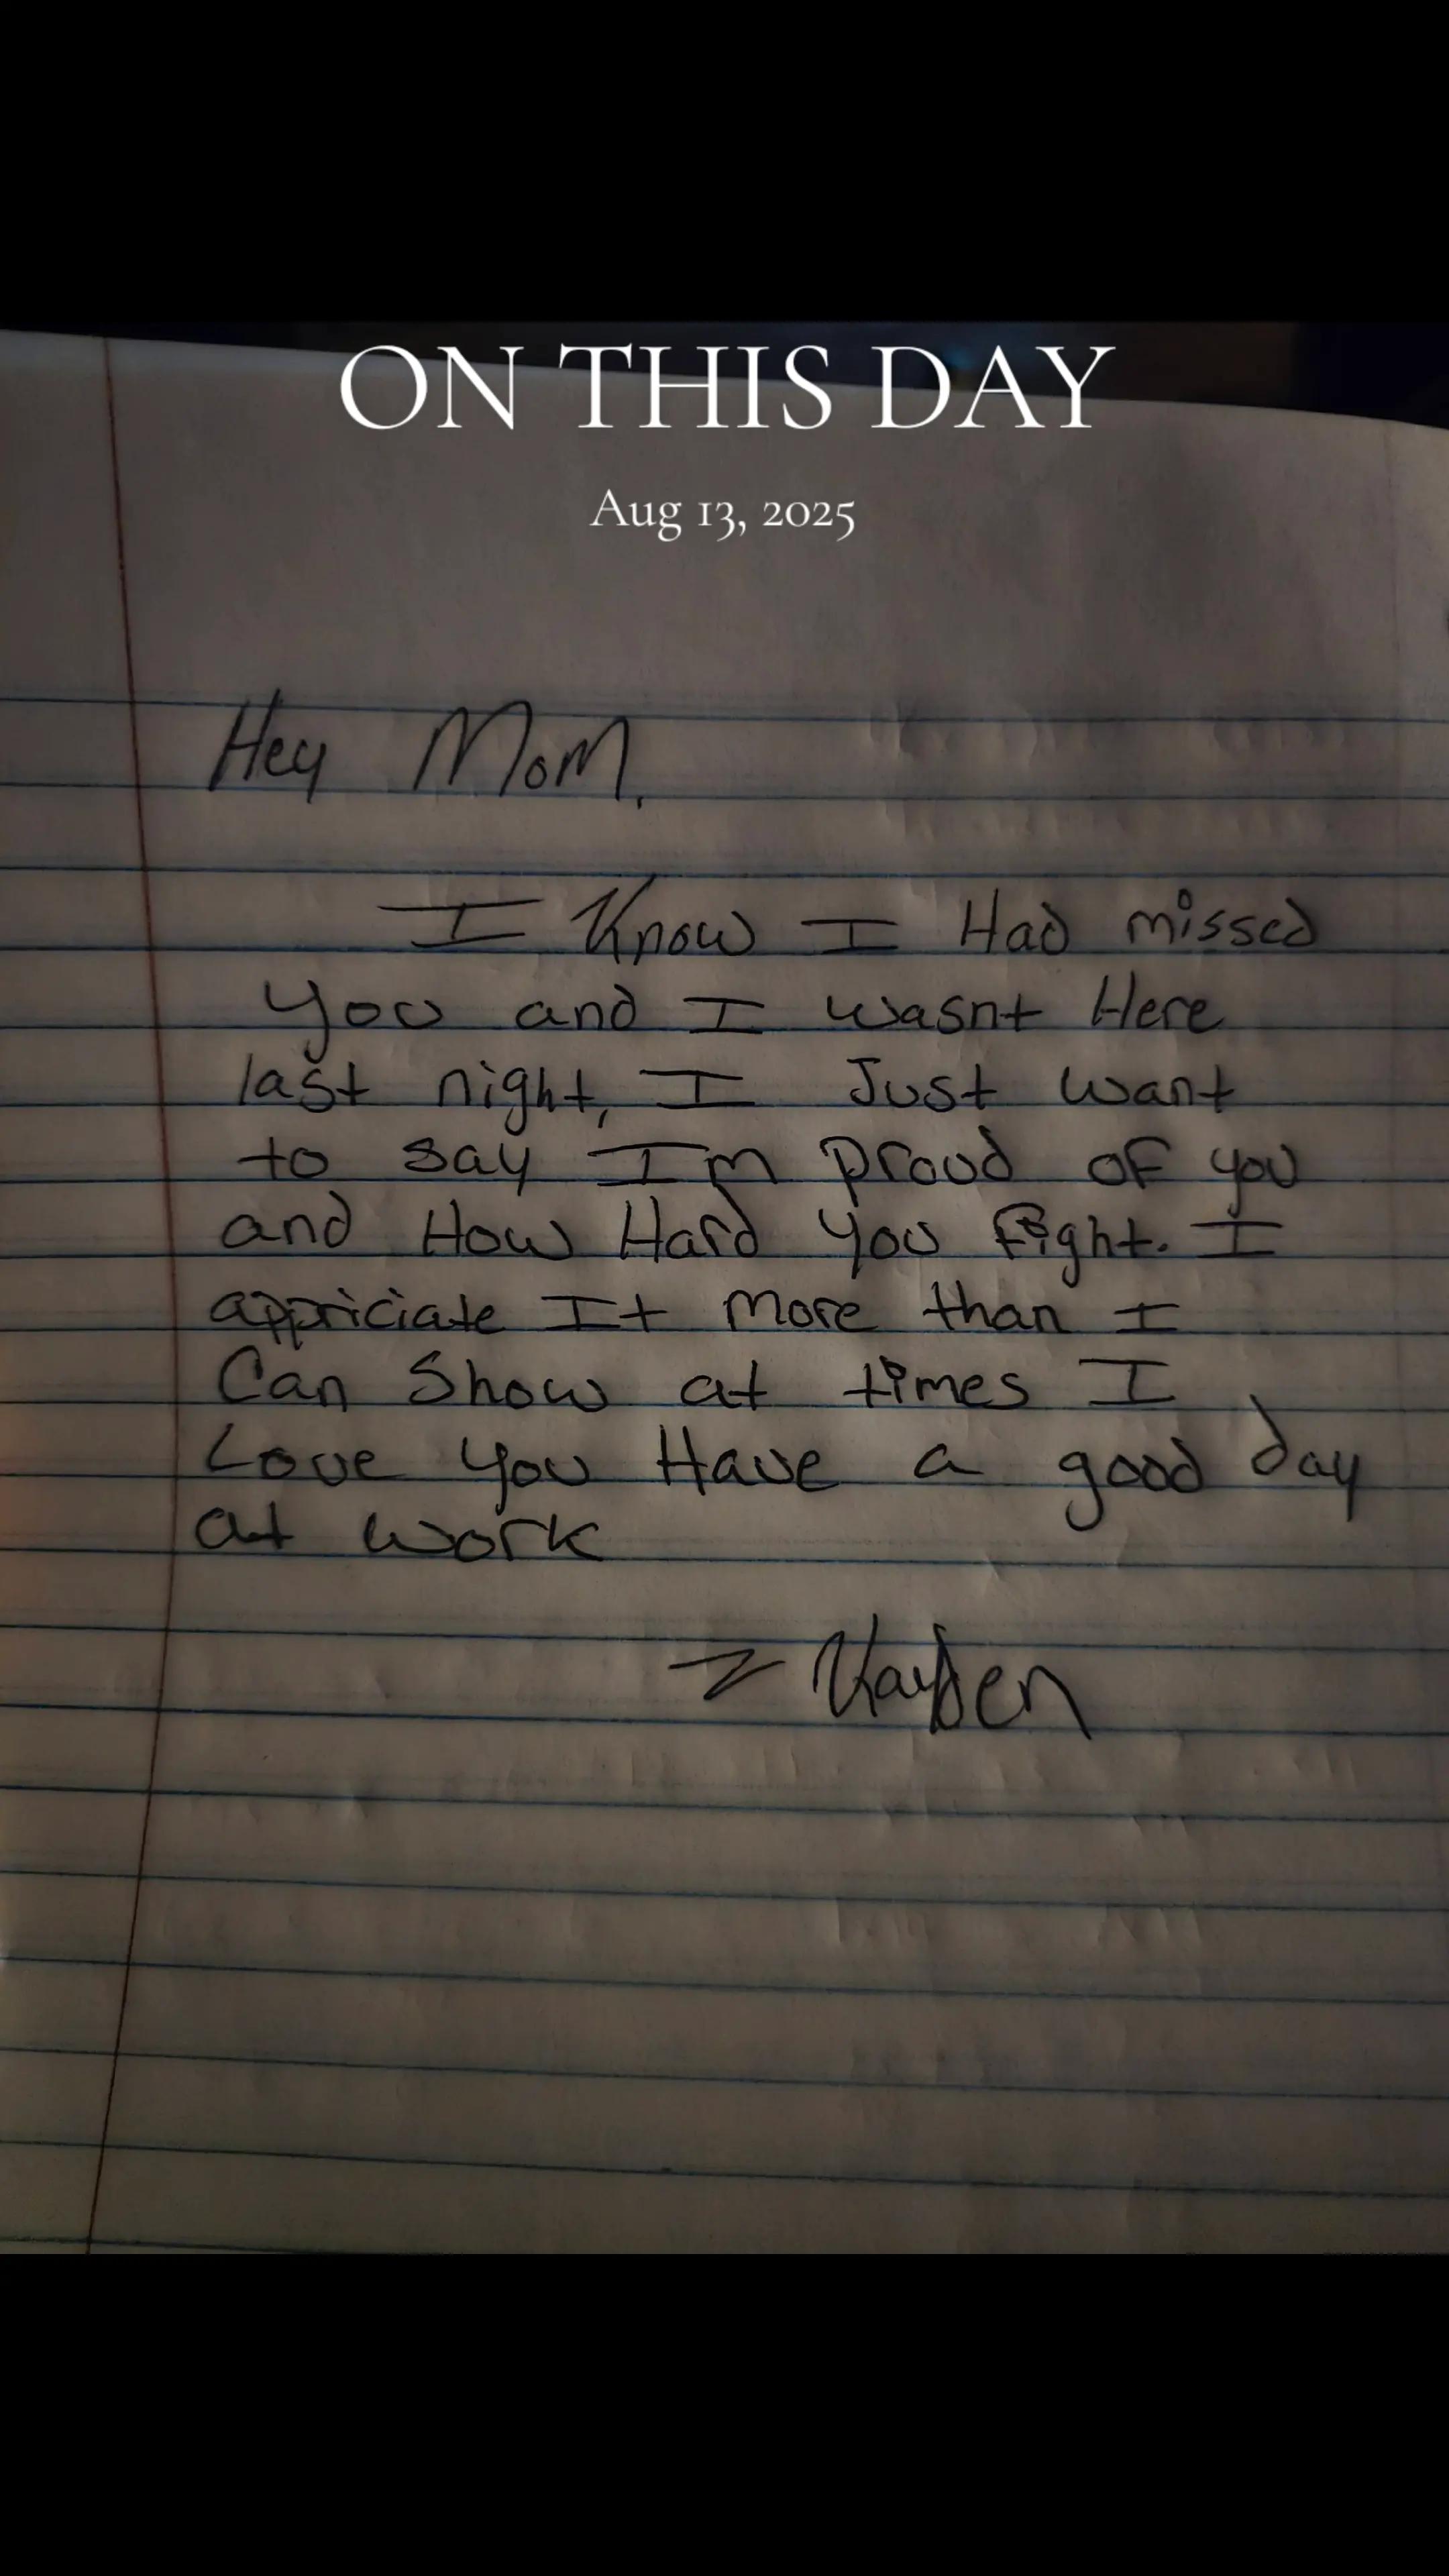 ON THIS DAY
Aug 13, 2025
Hey Mom,
I Know I Had missed
you and I wasnt Here
last night, I Just want
to say Im proud of you
and How Hard you fight. I
appriciate It more than I
Can Show at times I
Love you Have a good day
at work
Kayden